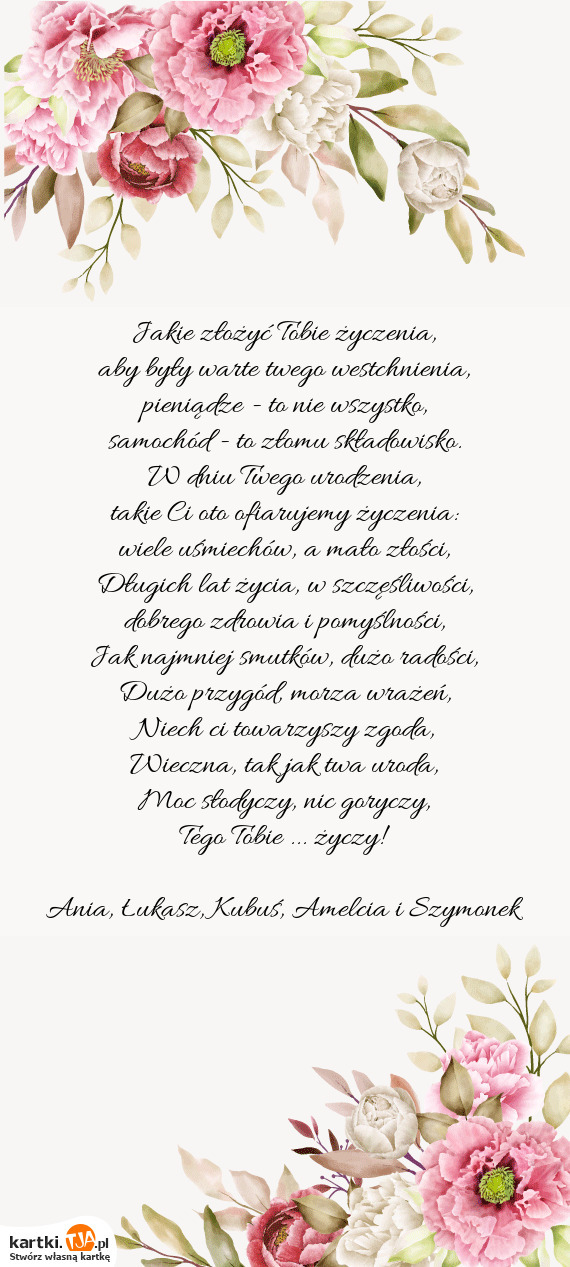 Jakie złożyć Tobie życzenia,
aby były warte twego westchnienia,
pieniądze - to nie wszystko,
samochód - to złomu składowisko.
W dniu Twego urodzenia,
takie Ci oto ofiarujemy życzenia:
wiele uśmiechów, a mało złości,
Długich lat życia, w szczęśliwości,
dobrego zdrowia i pomyślności,
Jak najmniej smutków, dużo radości,
Dużo przygód, morza wrażeń,
Niech ci towarzyszy zgoda,
Wieczna, tak jak twa uroda,
Moc słodyczy, nic goryczy,
Tego Tobie ... życzy!
Ania, Łukasz, Kubuś, Amelcia i Szymonek
kartki.TJA.pl
Stwórz własną kartkę